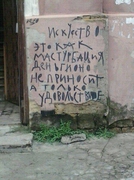 ИСКУССТВО
ЭТО КАК
МАСТУРБАЦИЯ
ДЕНЬГИ НО
НЕ ПРИНОСИТ
А ТОЛЬКО
УДОВОЛЬСТВИЕ